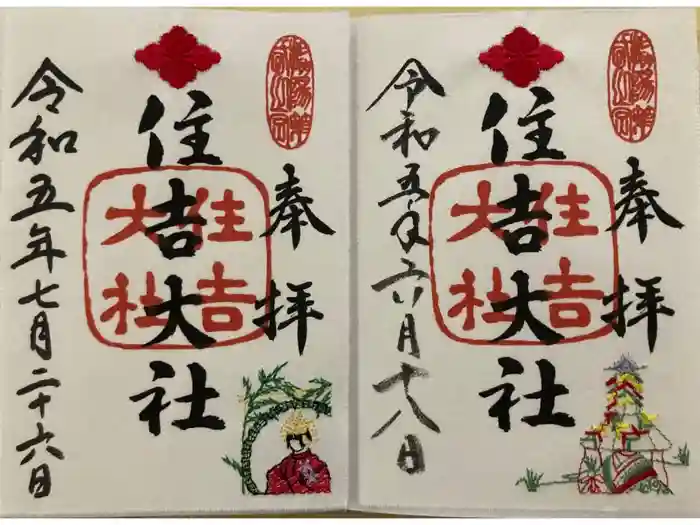 奉拝
住吉大社
住吉
大社
令和五年七月二十六日
奉拝
住吉大社
住吉
大社
令和五年六月十八日